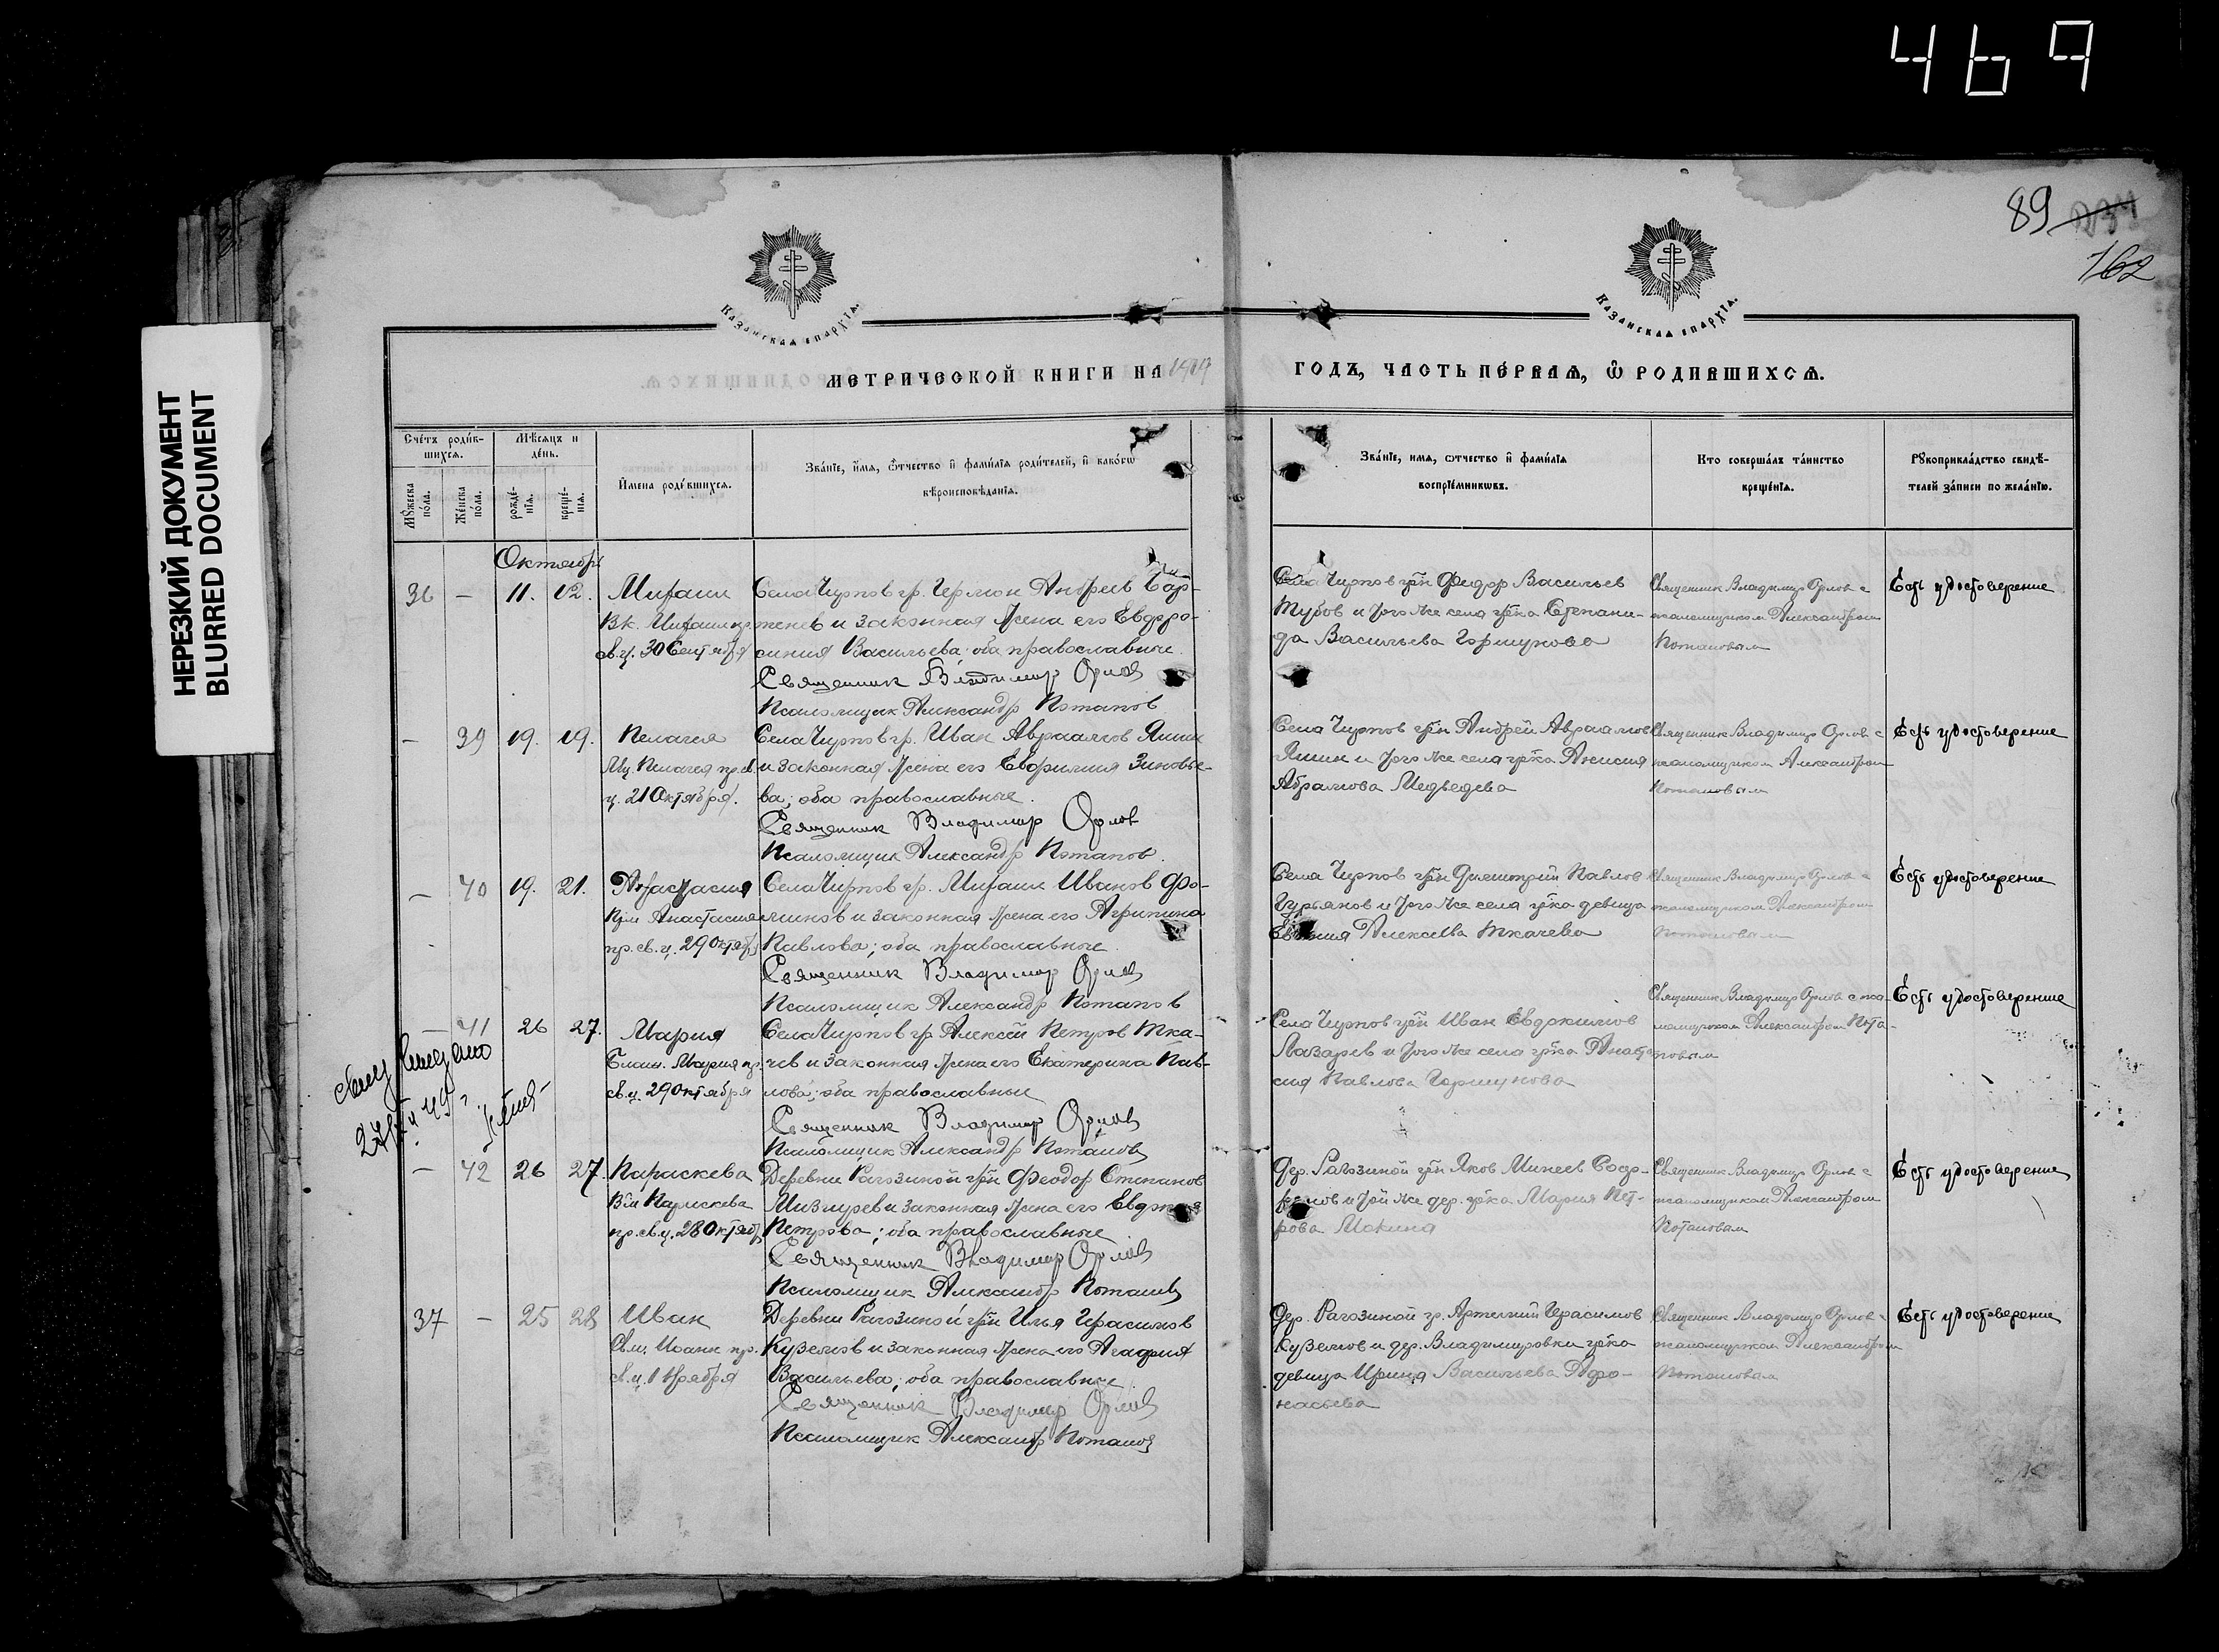 469
НЕРЕЗКИЙ ДОКУМЕНТ
BLURRED DOCUMENT
89
162
Казанская епархїя.
Казанская епархїя.
МЕТРИЧЕСКОЙ КНИГИ НА 1919
ГОДЪ, ЧАСТЬ ПЕ́РВАЯ, Ѿ РОДИВШИХСЯ.
Сче́тъ роди́в-
шихся.
Мѣ́сяцъ и
де́нь.
Мꙋ́жеска
по́ла.
Же́нска
по́ла.
рожде́-
нїя.
креще́-
нїя.
И́мена роди́вшихся.
Зва́нїе, и́мя, ѻ́тчество и҆ фами́лїя роди́телей, и҆ како́гѡ
вѣроисповѣ́данїя.
Зва́нїе, имя, ѻтчество и҆ фами́лїя
воспрїе́мникѡвъ.
Кто соверша́лъ та́инство
креще́нїя.
Рꙋкоприкла́дство свидѣ́-
телей за́писи по жела́нїю.
Октябрь
36 — 11. 12. Михаил
Села Чирпов гр. Андреев
и законная жена его Евдро-
св.ц. 30 Сентября
синия Васильева; оба православные.
Священник Владимир Орлов
Псаломщик Александр Потапов
Села Чирпов грн Федор Васильев
и того же села гр-ка Степани-
да Васильева Горшунова
Священник Владимир Орлов с
псаломщиком Александром
Потаповым
Есть удостоверение
— 39 19. 19. Пелагея
Села Чирпов гр. Иван Авраамов Яшин
Мц. Пелагея пр. св.
и законная жена его Зиновье-
ц. 21 Октября.
ва; оба православные.
Священник Владимир Орлов
Псаломщик Александр Потапов.
Села Чирпов грн Андрей Авраамов
Яшин и того же села гр-ка Анисия
Абрамова Медведева
Священник Владимир Орлов с
псаломщиком Александром
Потаповым
Есть удостоверение
— 40 19. 21. Анастасия
Села Чирпов гр. Михаил Иванов Фо-
Прм Анастасия
минов и законная жена его Агрипина
пр. св. ц. 29 Октяб
Павлова; оба православные.
Священник Владимир Орлов
Псаломщик Александр Потапов
Села Чирпов грн Димитрий Павлов
Гурьянов и того же села гр-ка девица
Алексеева Ткачева
Священник Владимир Орлов с
псаломщиком Александром
Потаповым
Есть удостоверение
— 41 26 27. Мария
Села Чирпов гр. Алексей Петров Тка-
Мария пр.
чев и законная жена его Екатерина Пав-
св.ц. 29 Октября
лова; оба православные
Священник Владимир Орлов
Псаломщик Александр Потапов
Села Чирпов грн Иван Евдокимов
Лазарев и того же села гр-ка Анаста-
сия Павлова Горшунова
Священник Владимир Орлов с пса-
ломщиком Александром Пота-
повым
Есть удостоверение
— 42 26 27. Параскева
Деревни Рагозиной грн Феодор Степанов
Параскева
и законная жена его
пр. св. ц. 28 Октяб
Петрова; оба православные
Священник Владимир Орлов
Псаломщик Александр Потапов
Дер. Рагозиной грн Яков Минеев
и той же дер. гр-ка Мария Пет-
рова Мокина
Священник Владимир Орлов с
псаломщиком Александром
Потаповым
Есть удостоверение
37 — 25 28 Иван
Деревни Рагозиной грн Илья Герасимов
Иоанн пр.
и законная жена его Агафия
св.ц. 1 Ноября
Васильева; оба православные
Священник Владимир Орлов
Псаломщик Александр Потапов
Дер. Рагозиной гр. Артемий Герасимов
и дер. Владимировки гр-ка
девица Ирина Васильева Афо-
насьева
Священник Владимир Орлов с
псаломщиком Александром
Потаповым
Есть удостоверение